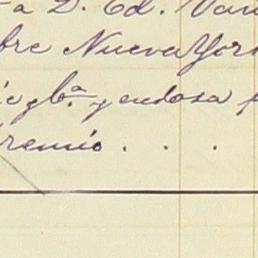 a D. Ed. Van
bre Nueva York
y endosa
remio . . .